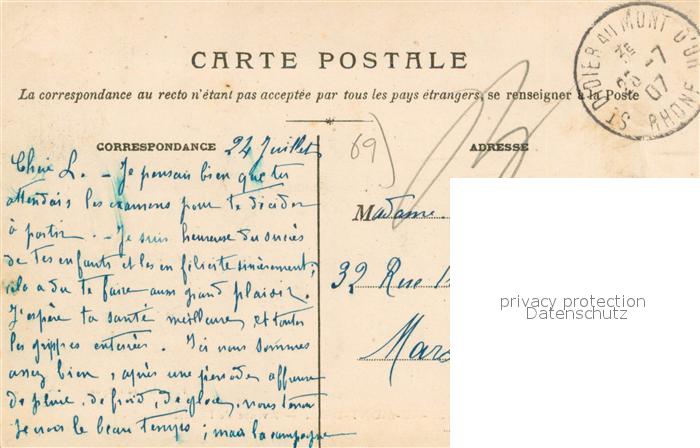 CARTE POSTALE
La correspondance au recto n'étant pas acceptée par tous les pays étrangers, se renseigner à la Poste
ST DIDIER AU MONT D'OR
-7
07
RHONE
CORRESPONDANCE
ADRESSE
24 Juillet
69
Chère L. - Je pensais bien que tu
attendais les examens pour te décider
à partir. - Je suis heureuse du succès
de tes enfants et les en félicite sincèrement ;
cela a du te faire aussi grand plaisir.
J'espère ta santé meilleure, et toutes
les grippes enterrées. Ici nous sommes
assez bien, après une période affreuse
de pluie, de froid, de glace, nous
le beau temps ; mais la campagne
Madame
32 Rue
Mars
privacy protection
Datenschutz